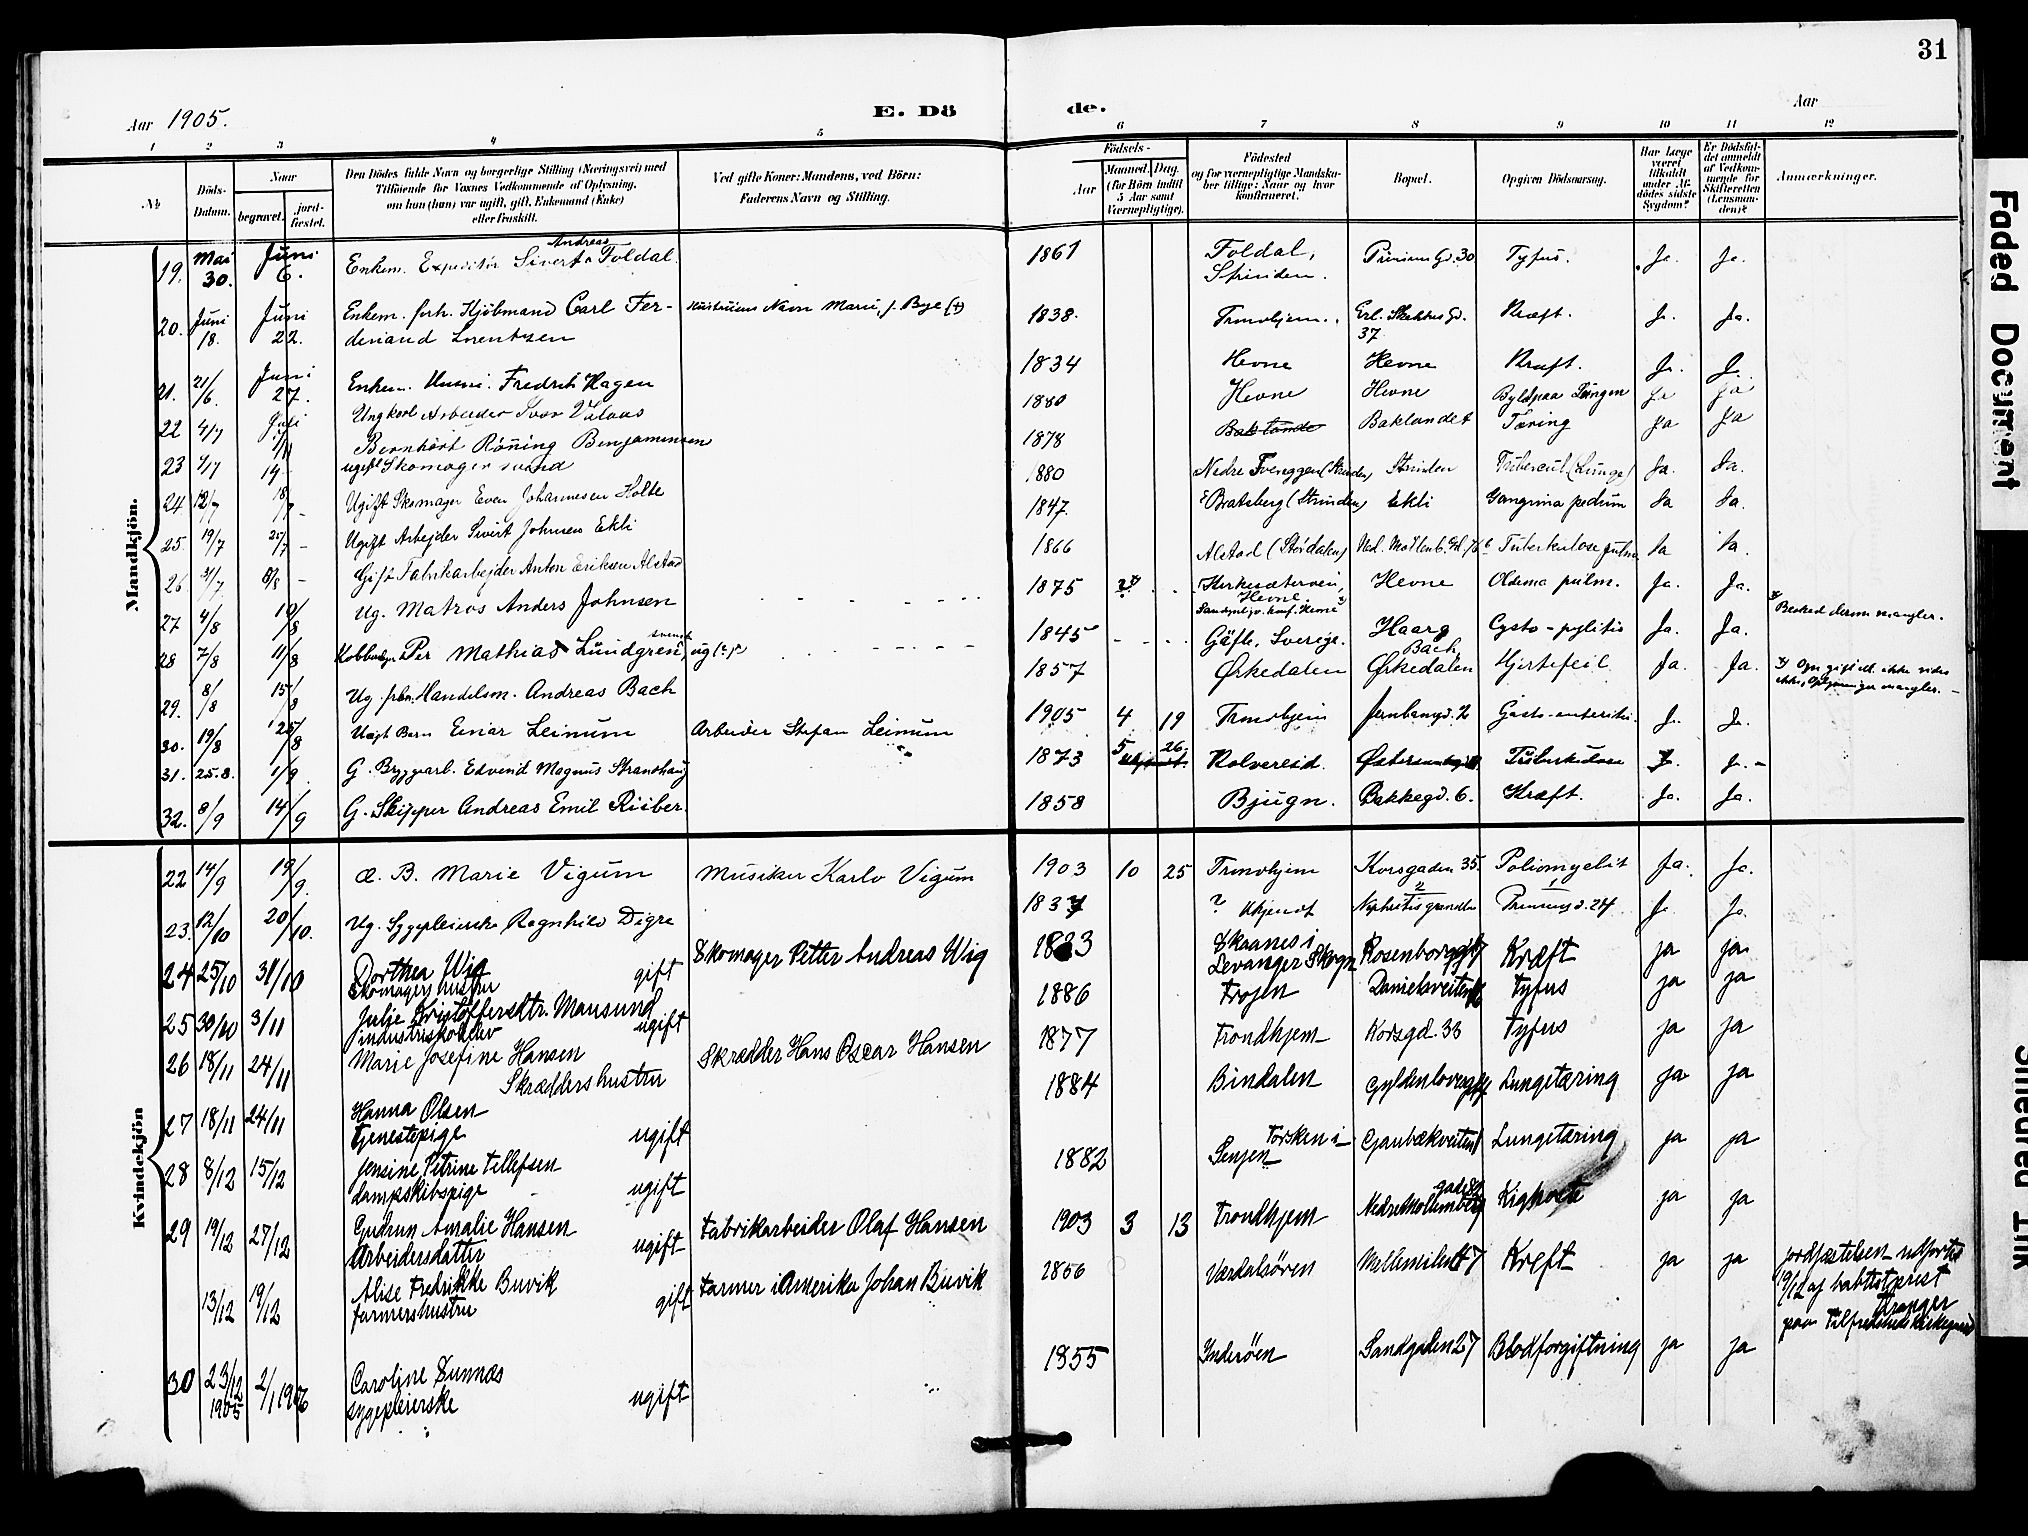 31
Aar 1905.
E. Dö de.
Aar
1 2 3 4 5 6 7 8 9 10 11 12
No.
Döds-Datum.
Naar
begravet.
jord-fæstet.
Den Dödes fulde Navn og borgerlige Stilling (Næringsvei) med
Tilföiende for Voxnes Vedkommende af Oplysning,
om han (hun) var ugift, gift, Enkemand (Enke)
eller fraskilt.
Ved gifte Koner: Mandens, ved Börn:
Faderens Navn og Stilling.
Födsels-
Aar
Maaned. Dag.
(for Börn indtil
5 Aar samt
Værnepligtige).
Födested
og for værnepligtige Mandska-
ber tillige: Naar og hvor
konfirmeret.
Bopæl.
Opgiven Dödsaarsag.
Har Læge
været
tilkaldt
under Af-
dödes sidste
Sygdom?
Er Dödsfal-
det anmeldt
af Vedkom-
mende for
Skifteretten
(Lensman-
den)?
Anmærkninger.
Mandkjön.
19. Mai 30. Juni 6. Enkem. Expeditör Sivert Andreas Foldal. 1861 Foldal, Strinden. 30 Tyfus. Ja. Ja.
20. Juni 18. Juni 22. Enkem. forh. Kjöbmand Carl Fer-
dinand Lorentzen Hustruens Navn Marie, f. Bye (+) 1838. Trondhjem. 37 Kræft. Ja. Ja.
21. 21/6. Juni 27. Enkem. Fredrik Hagen 1834 Hevne Hevne Kræft. Ja. Ja.
22 4/7 Juli Ungkarl Arbeider Ivar 1880 Hevne Hevne Byld paa Lungen Ja Ja
23 Bernhart Röning Benjaminsen
ugift Skomagersvend 1878 Baklandet Tæring Ja Ja
24 12/7 18/7 – Ugift Skomager Even Johannesen Holte 1880 Nedre (Strinden) Strinden Tubercul (Lunge) Ja. Ja.
25. 19/7 25/7 – Ugift Arbejder Sivert Johnsen Ekli 1847. Bratsberg (Strinden) Ekli Gangræna pedum Ja Ja.
26 31/7 8/8 – Gift Fabrikarbejder Anton Eriksen Alstad 1866 Alstad (Stördalen) Tuberkulose pulm. Ja Ja.
27 4/8 10/8 Ug. Matros Anders Johnsen 1875 Hevne. Hevne Oedema pulm. Ja. Ja. Besked derom mangler.
28 7/8 11/8 Per Mathias Lundgren, svensk ug (?) 1845 Gäfle, Sverige. Cysto-pylitis Ja. Ja.
29. 8/8 15/8 Ug. fhv. Handelsm. Andreas Bach 1857 Örkedalen Bach, Örkedalen Hjertefeil Ja. Ja. ikke, Oplysninger mangler.
30. 19/8 25/8 Uægt Barn Einar Leinum Arbeider Stefan Leinum 1905 4 19 Trondhjem Jernbanegd. 2 Gastro-enteritis. Ja. Ja.
31. 25.8. 1/9. G. Bryggearb. Edvend Magnus Strandhaug 1873 5 26. Kolvereid. Tuberkulose J. J.
32. 8/9 14/9 G. Skipper Andreas Emil Risber. 1858 Bjugn. Bakkegd. 6. Kræft. Ja. Ja.
Kvindekjön
22 14/9 19/9. Æ. B. Marie Vigum Musiker Karlo Vigum 1903 10 25 Trondhjem Korsgaden 35. Poliomyelit Ja. Ja.
23. 12/10 20/10. Ug. Sygepleierske Ragnhild Digre ? Ukjendt Ja. Ja.
24 25/10 31/10 Dorthea Wig
Skomagers hustru gift Skomager Petter Andreas Wig Skaanes i
Levanger Skogn Kræft ja ja
25 30/10 3/11 Julie Kristoffersdtr. Mausund
industriskolelev ugift 1886 Fröjen Tyfus ja ja
26 18/11 24/11 Marie Josefine Hansen
Skrædders hustru Skrædder Hans Oscar Hansen 1877 Trondhjem Korsgd. 33 Tyfus ja ja
27 18/11 24/11 Hanna Olsen
Tjenestepige ugift 1884 Bindalen Lungetæring ja ja
28 8/12 15/12 Jensine Petrine Tellefsen
dampskibspige ugift 1882 Torsken i
Senjen Lungetæring ja ja
29 19/12 27/12 Gudrun Amalie Hansen
Arbeidersdatter ugift Fabrikarbeider Olaf Hansen 1903 3 13 Trondhjem Kighoste ja ja
13/12 19/12 Alise Fredrikke Buvik
farmershustru gift Farmer i Amerika Johan Buvik 1856 Værdalsören Kreft ja ja Jordfæstelsen udfortes
19/12 af babtistprest
Stranger
paa Tilfredsheds kirkegaard
30 23/12 1905 2/1 1906 Caroline Sunnæs
sygepleierske ugift 1855 Inderöen Sandgaden 27 Blodforgiftning ja ja
Faded Document
Smearred Ink